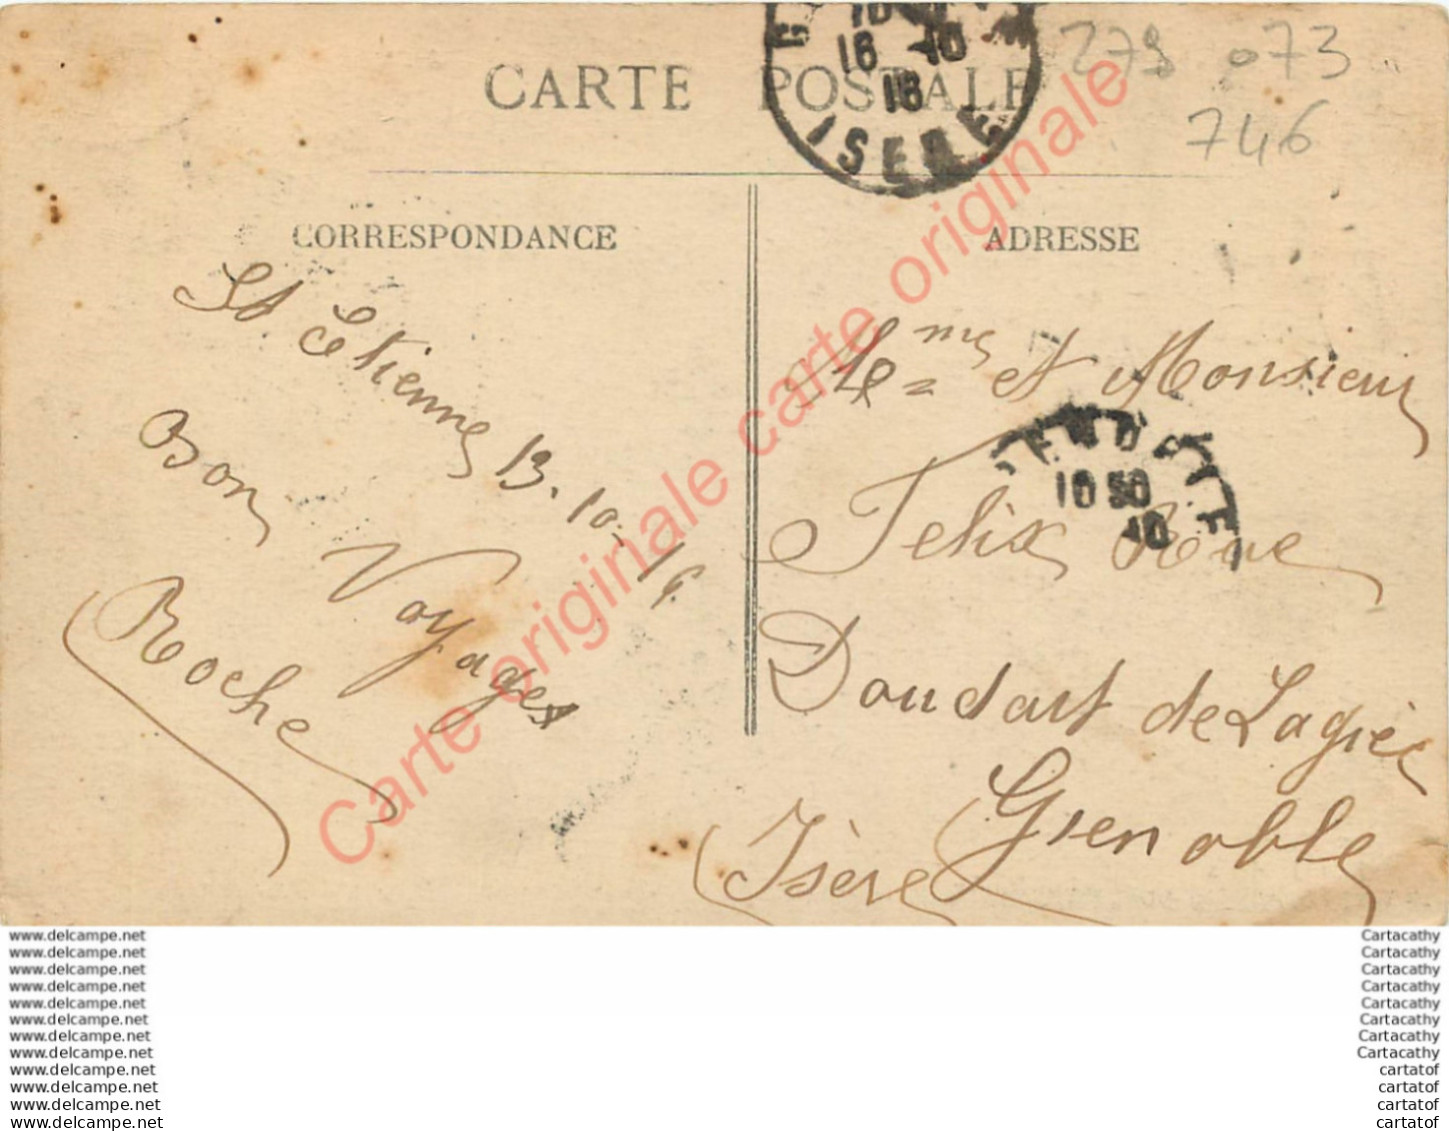 279 073
746
CARTE POSTALE
10
16 10
16
ISERE
CORRESPONDANCE
ADRESSE
St. Etienne 13.10.16.
Bon Voyages
Roche
Mme et Monsieur
Felix Rue
Doudart de Lagrée
Grenoble
Isère
10 50
10
Carte originale carte originale
Carte originale
www.delcampe.net
www.delcampe.net
www.delcampe.net
www.delcampe.net
www.delcampe.net
www.delcampe.net
www.delcampe.net
www.delcampe.net
www.delcampe.net
www.delcampe.net
www.delcampe.net
www.delcampe.net
Cartacathy
Cartacathy
Cartacathy
Cartacathy
Cartacathy
Cartacathy
Cartacathy
Cartacathy
cartatof
cartatof
cartatof
cartatof